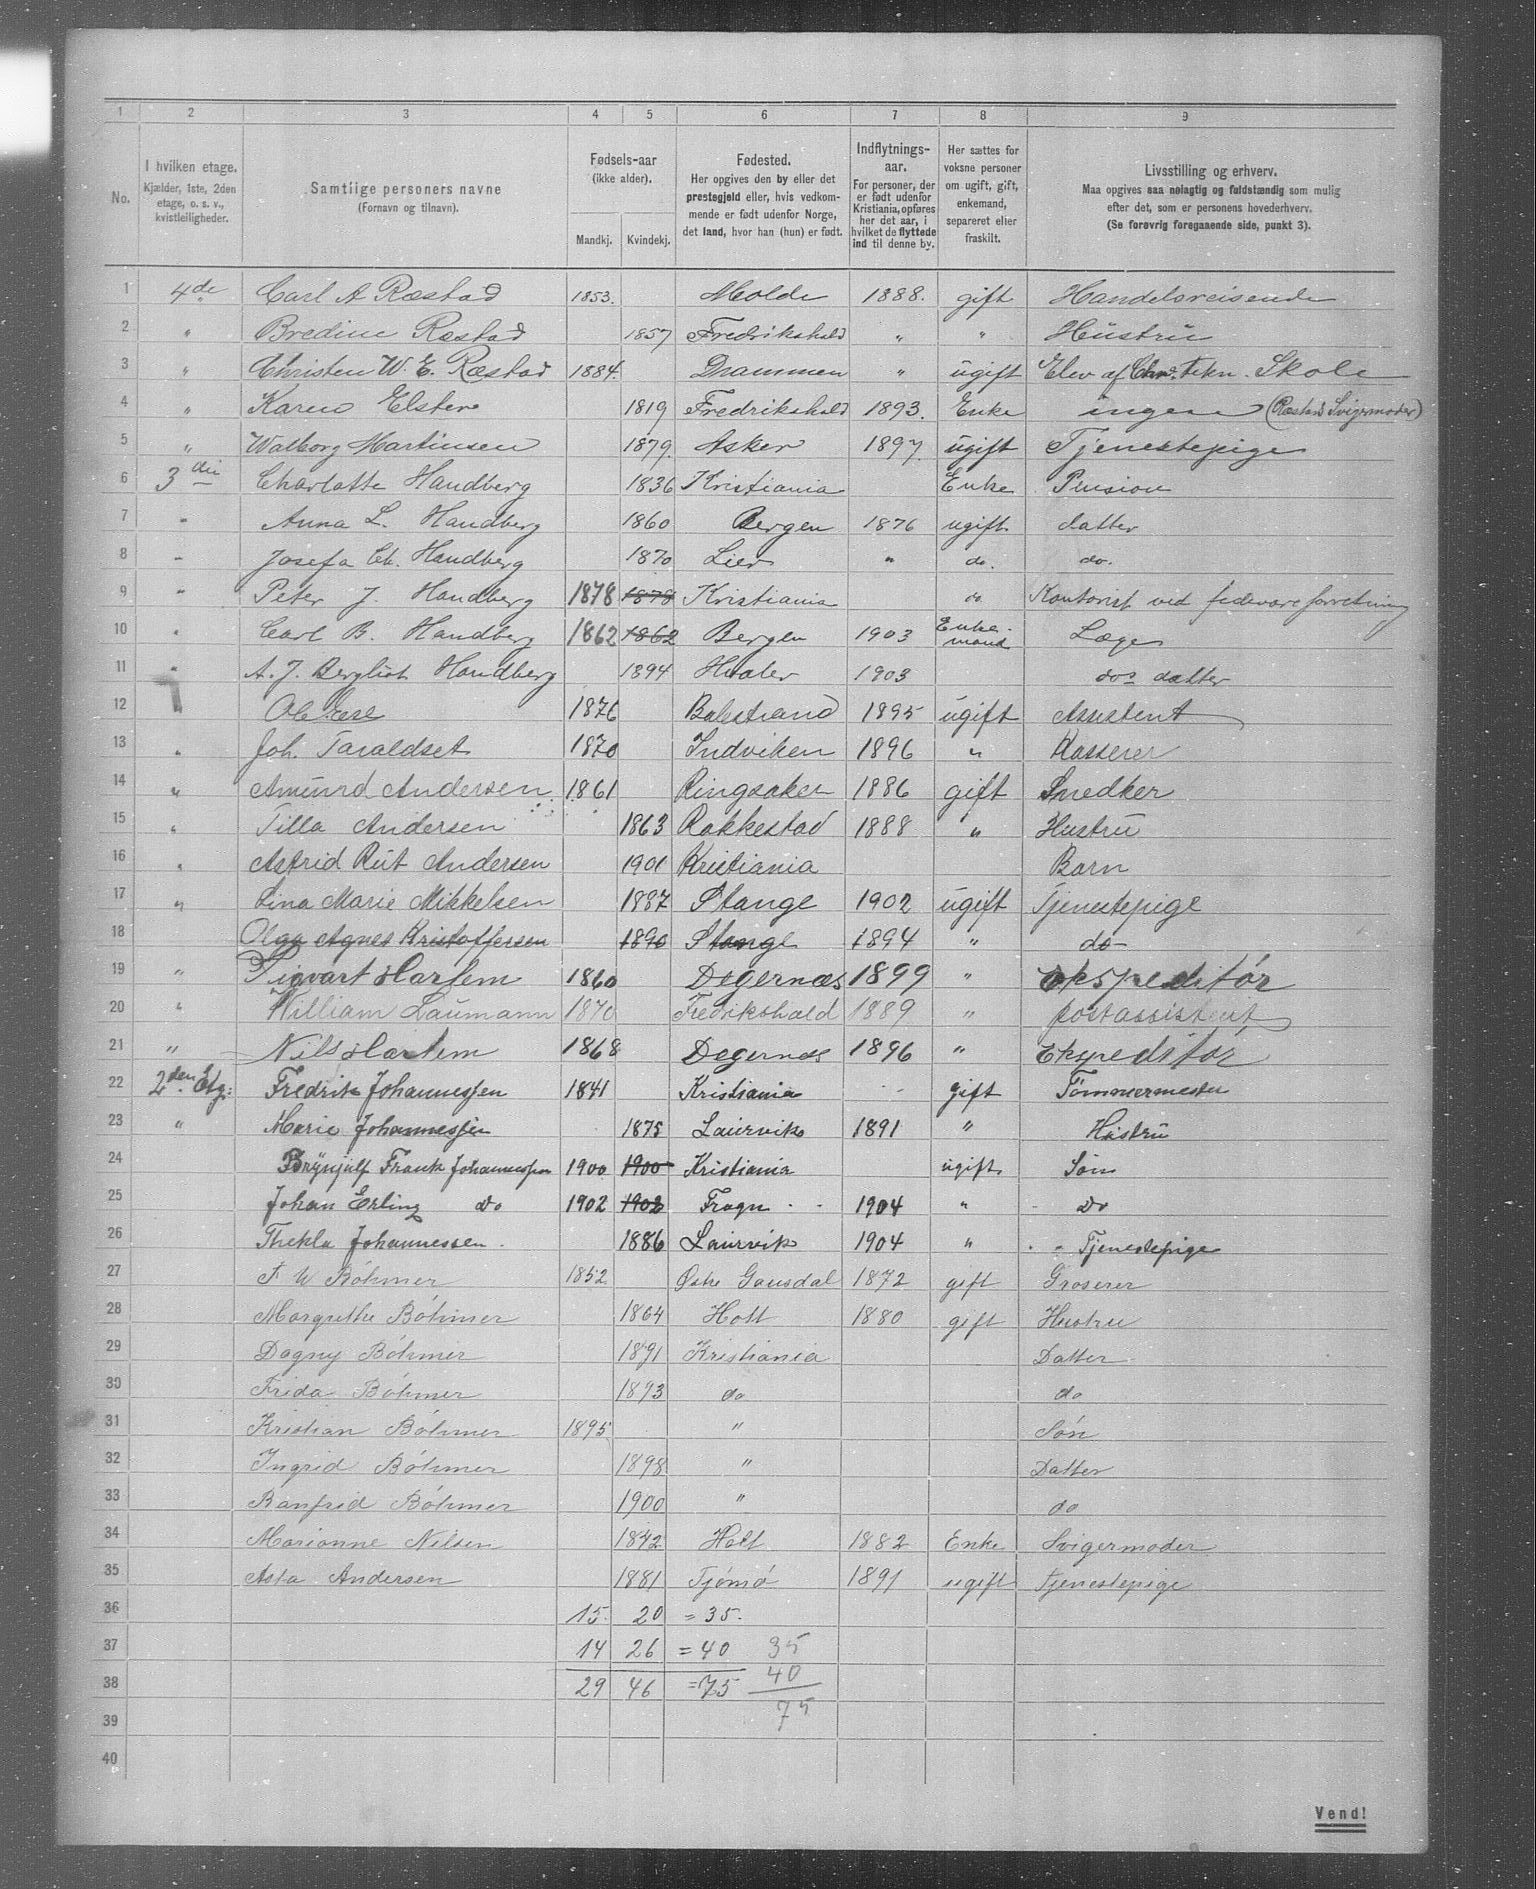 1 2 3 4 5 6 7 8 9
No.
I hvilken etage.
Kjælder, 1ste, 2den
etage, o. s. v.,
kvistleiligheder.
Samtlige personers navne
(Fornavn og tilnavn).
Fødsels-aar
(ikke alder).
Mandkj. Kvindekj.
Fødested.
Her opgives den by eller det
prestegjeld eller, hvis vedkom-
mende er født udenfor Norge,
det land, hvor han (hun) er født.
Indflytnings-
aar.
For personer, der
er født udenfor
Kristiania, opføres
her det aar, i
hvilket de flyttede
ind til denne by.
Her sættes for
voksne personer
om ugift, gift,
enkemand,
separeret eller
fraskilt.
Livsstilling og erhverv.
Maa opgives saa nøiagtig og fuldstændig som mulig
efter det, som er personens hovederhverv.
(Se forøvrig foregaaende side, punkt 3).
1 4de Carl A Ræstad 1853. Molde 1888. gift Handelsreisende
2 " Bredine Ræstad 1857 Fredrikshald " " Hustru
3 " Christen W. E. Ræstad 1884. Drammen " ugift Elev af Chra. tekn. Skole
4 " Karen Elster 1819 Fredrikshald 1893. Enke ingen (Ræstads Svigermoder)
5 " Walborg Martinsen 1879. Asker 1897. ugift Tjenestepige
6 3die Charlotte Handberg 1836 Kristiania Enke Pension
7 " Anna L. Handberg 1860 Bergen 1876 ugift datter
8 " Josefa Ch. Handberg 1870 Lier " do. do.
9 " Peter J. Handberg 1878 1878 Kristiania do Kontorist ved fedevareforretning
10 " Carl B. Handberg 1862 1862 Bergen 1903 Enke-mand Læge
11 " A. J. Bergliot Handberg 1894 Hvaler 1903 dos datter
12 " Ole 1876 Balestrand 1895 ugift Assistent
13 " Joh. Taraldset 1870 Indviken 1896 " Kasserer
14 " Amund Andersen 1861 Ringsaker 1886 gift Snedker
15 " Tilla Andersen 1863 Rakkestad 1888 " Hustru
16 " Astrid Rut Andersen 1901 Kristiania Barn
17 " Lina Marie Mikkelsen 1887 Stange 1902 ugift Tjenestepige
18 Olga Agnes Kristoffersen 1890 Stange 1894 " do
19 " Sigvart Harlem 1860 Degernæs 1899 " Ekspeditør
20 " William Laumann 1870 Fredrikshald 1889 " postassistent
21 " Nils Harlem 1868 Degernæs 1896 " Ekspeditør
22 2den Etg: Fredrik Johannessen 1841 Kristiania gift Tømmermester
23 " Marie Johannessen 1875 Laurvik 1891 " Hustru
24 Brynjulf Frank Johannessen 1900 1900 Kristiania ugift Søn
25 Johan Erling do 1902 1902 Frogn 1904 " do
26 Thekla Johannessen. 1886 Laurvik 1904 " " Tjenestepige
27 F W Bøhmer 1852 Østre Gausdal 1872 gift Groserer
28 Margrethe Bøhmer 1864 Holt 1880 gift Hustru
29 Dagny Bøhmer 1891 Kristiania Datter
30 Frida Bøhmer 1893 do do
31 Kristian Bøhmer 1895 " Søn
32 Ingrid Bøhmer 1898 " Datter
33 Ranfrid Bøhmer 1900 " do
34 Marianne Nilsen 1842 Holt 1882 Enke Svigermoder
35 Asta Andersen 1881 Tjømø 1891 ugift Tjenestepige
36 15. 20 = 35.
37 14 26 = 40 35
38 29 46 = 75 40
39 75
40
Vend!